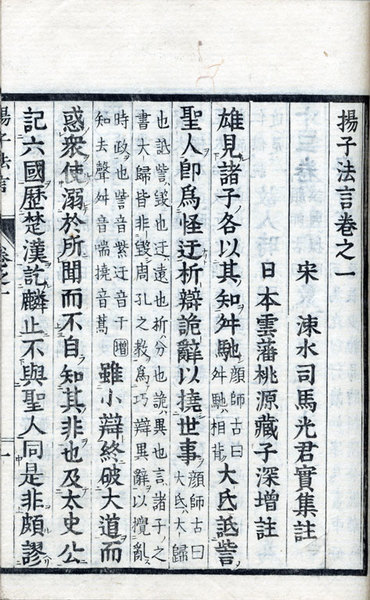 揚子法言卷之一
宋　涑水司馬光君實集註
日本雲藩桃源藏子深增註
雄見諸子各以其知舛馳顔師古曰舛馳相背大氐詆訾
聖人卽爲怪迂析辯詭辭以撓世事顔師古曰大氐大歸
也詆訾毀也迂遠也析分也詭異也言諸子之
書大歸皆非毀周孔之教爲巧辯異辭以攪亂
時政也訾音紫迂音于增
知去聲舛音喘撓音蒿
雖小辯終破大道而
惑衆使溺於所聞而不自知其非也及太史公
記六國歷楚漢訖麟止不與聖人同是非頗謬
揚子法言　卷之一　一